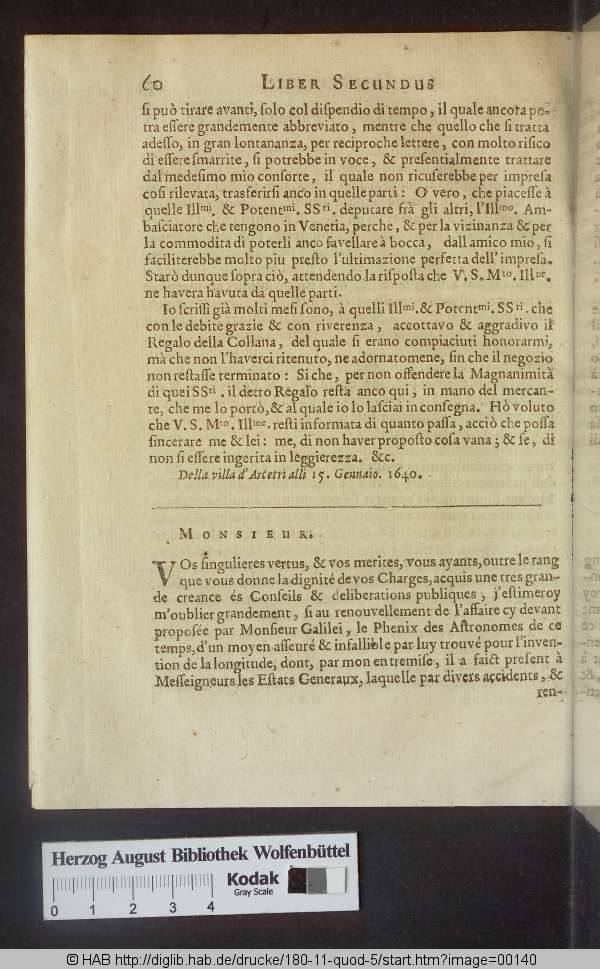 60 LIBER SECUNDUS
si può tirare avanti, solo col dispendio di tempo, il quale ancora po-
tra essere grandemente abbreviato, mentre che quello che si tratta
adesso, in gran lontananza, per reciproche lettere, con molto risico
di essere smarrite, si potrebbe in voce, & presentialmente trattare
dal medesimo mio consorte, il quale non ricuserebbe per impresa
cosi rilevata, trasferirsi anco in quelle parti: O vero, che piacesse à
quelle Illmi. & Potentmi. SSri. deputare frà gli altri, l'Illmo. Am-
basciatore che tengono in Venetia, perche, & per la vizinanza & per
la commodita di poterli anco favellare à bocca, dall amico mio, si
faciliterebbe molto piu presto l'ultimazione perfetta dell' impresa.
Starò dunque sopra ciò, attendendo la risposta che V. S. Mto. Illne.
ne havera havuta da quelle parti.
Io scrissi già molti mesi sono, à quelli Illmi. & Potentmi. SSri. che
con le debite grazie & con riverenza, accottavo & aggradivo il
Regalo della Collana, del quale si erano compiaciuti honorarmi,
mà che non l'haverci ritenuto, ne adornatomene, sin che il negozio
non restasse terminato: Si che, per non offendere la Magnanimità
di quei SSri. il detto Regalo resta anco qui, in mano del mercan-
te, che me lo portò, & al quale io lo lasciai in consegna. Hò voluto
che V. S. Mto. Illme. resti informata di quanto passa, acciò che possa
sincerare me & lei: me, di non haver proposto cosa vana; & se, di
non si essere ingerita in leggierezza. &c.
Della villa d'Arcetri alli 15. Gennaio. 1640.
MONSIEUR.
VOs singulieres vertus, & vos merites, vous ayants, outre le rang
que vous donne la dignité de vos Charges, acquis une tres gran-
de creance és Conseils & deliberations publiques; j'estimeroy
m'oublier grandement, si au renouvellement de l'affaire cy devant
proposée par Monsieur Galilei, le Phenix des Astronomes de ce
temps, d'un moyen asseuré & infallible par luy trouvé pour l'inven-
tion de la longitude, dont, par mon entremise, il a faict present à
Messeigneurs les Estats Generaux, laquelle par divers accidents, &
ren-
Herzog August Bibliothek Wolfenbüttel
Kodak
Gray Scale
0 1 2 3 4
© HAB http://diglib.hab.de/drucke/180-11-quod-5/start.htm?image=00140